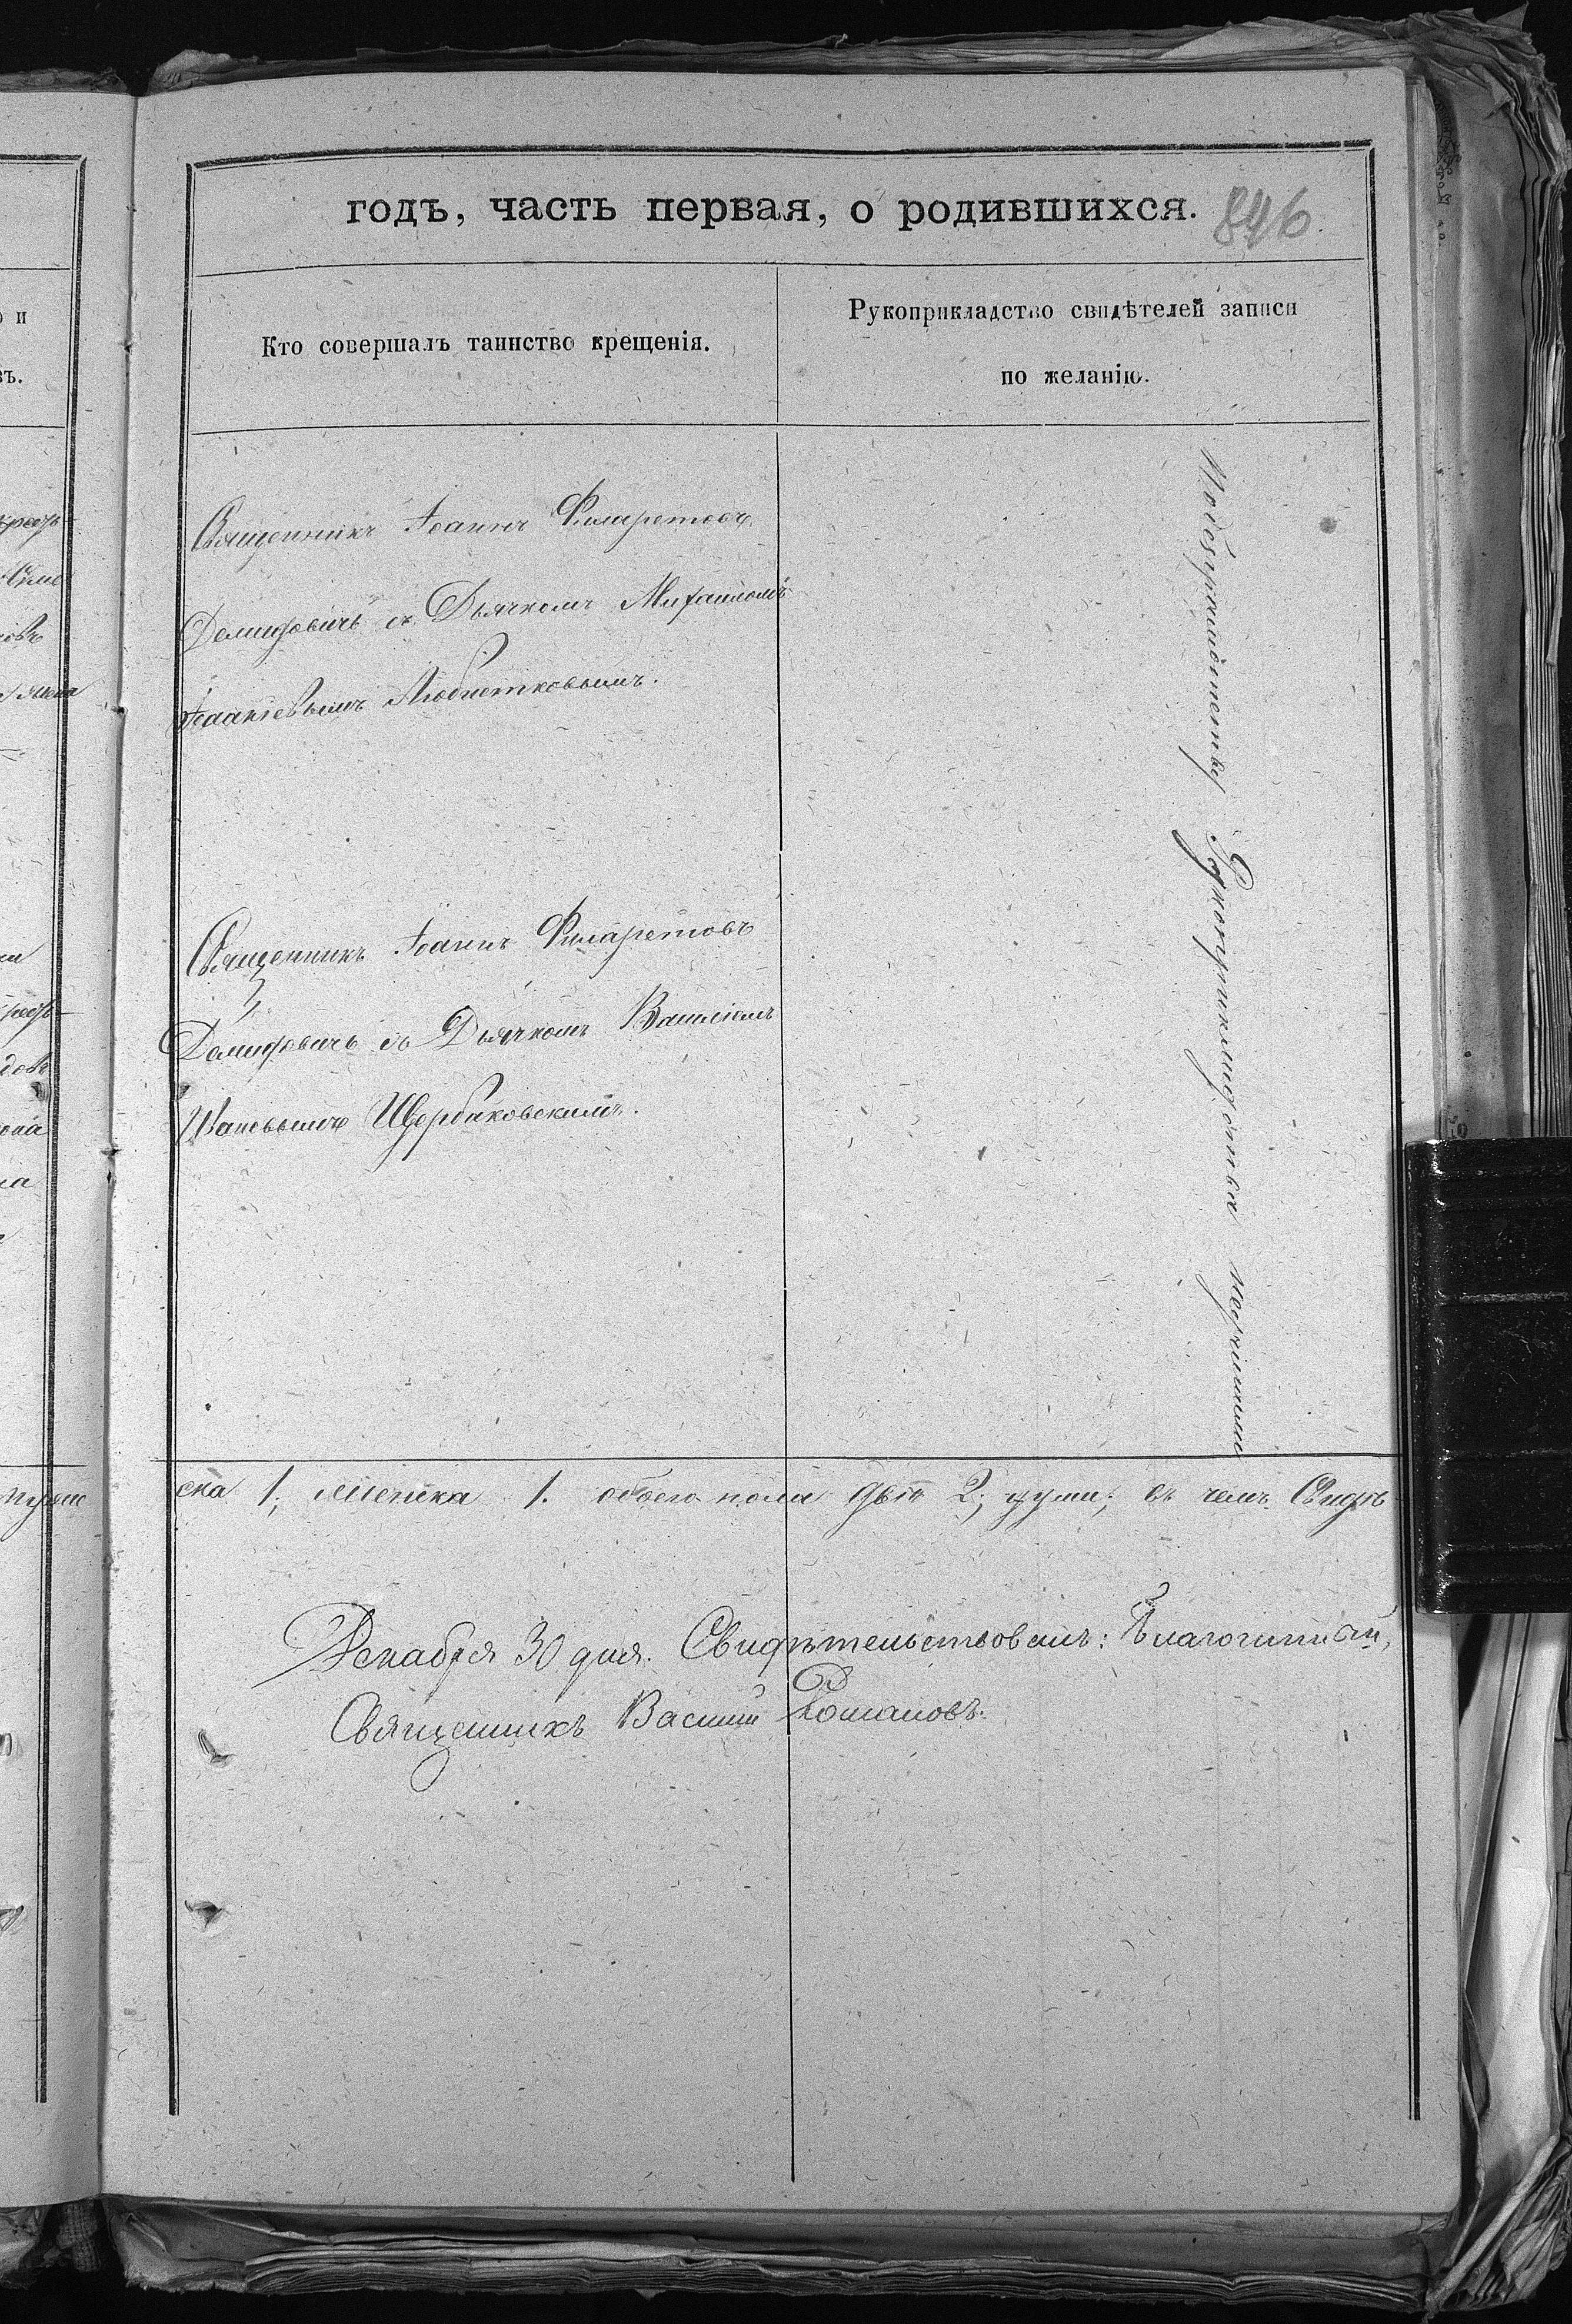 годъ, часть первая, о родившихся. 846
Кто совершалъ таинство крещенія.
Рукоприкладство свидѣтелей записи
по желанію.
Священникъ Іоаннъ Филаретовъ
Демидовичъ съ Дьячкомъ Михаиломъ
Іоакіевымъ Любчетковымъ.
Священникъ Іоаннъ Филаретовъ
Демидовичъ съ Дьячкомъ Василіемъ
Ивановымъ Щербаковскимъ.
По безграмотству Рукоприкладства неучинили
ска 1, женска 1. обоего пола двѣ 2; души; въ чемъ Свидѣ
Декабря 30 дня. Свидѣтельствовалъ: Благочинный,
Священникъ Василій Романовъ.